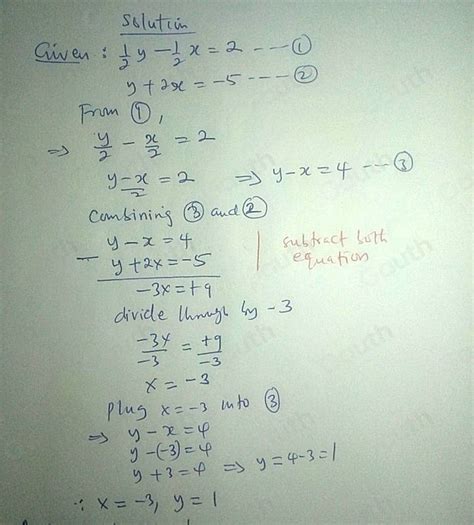 Solution
Given : 1/2 y - 1/2 x = 2 --- ①
y + 2x = -5 --- ②
From ①,
⇒ y/2 - x/2 = 2
(y-x)/2 = 2 ⇒ y-x = 4 -- ③
Combining ③ and ②
y - x = 4 | subtract both
- y + 2x = -5 | equation
-3x = +9
divide through by -3
-3x/-3 = +9/-3
x = -3
Plug x = -3 into ③
⇒ y - x = 4
y-(-3) = 4
y + 3 = 4 ⇒ y = 4-3 = 1
∴ x = -3, y = 1